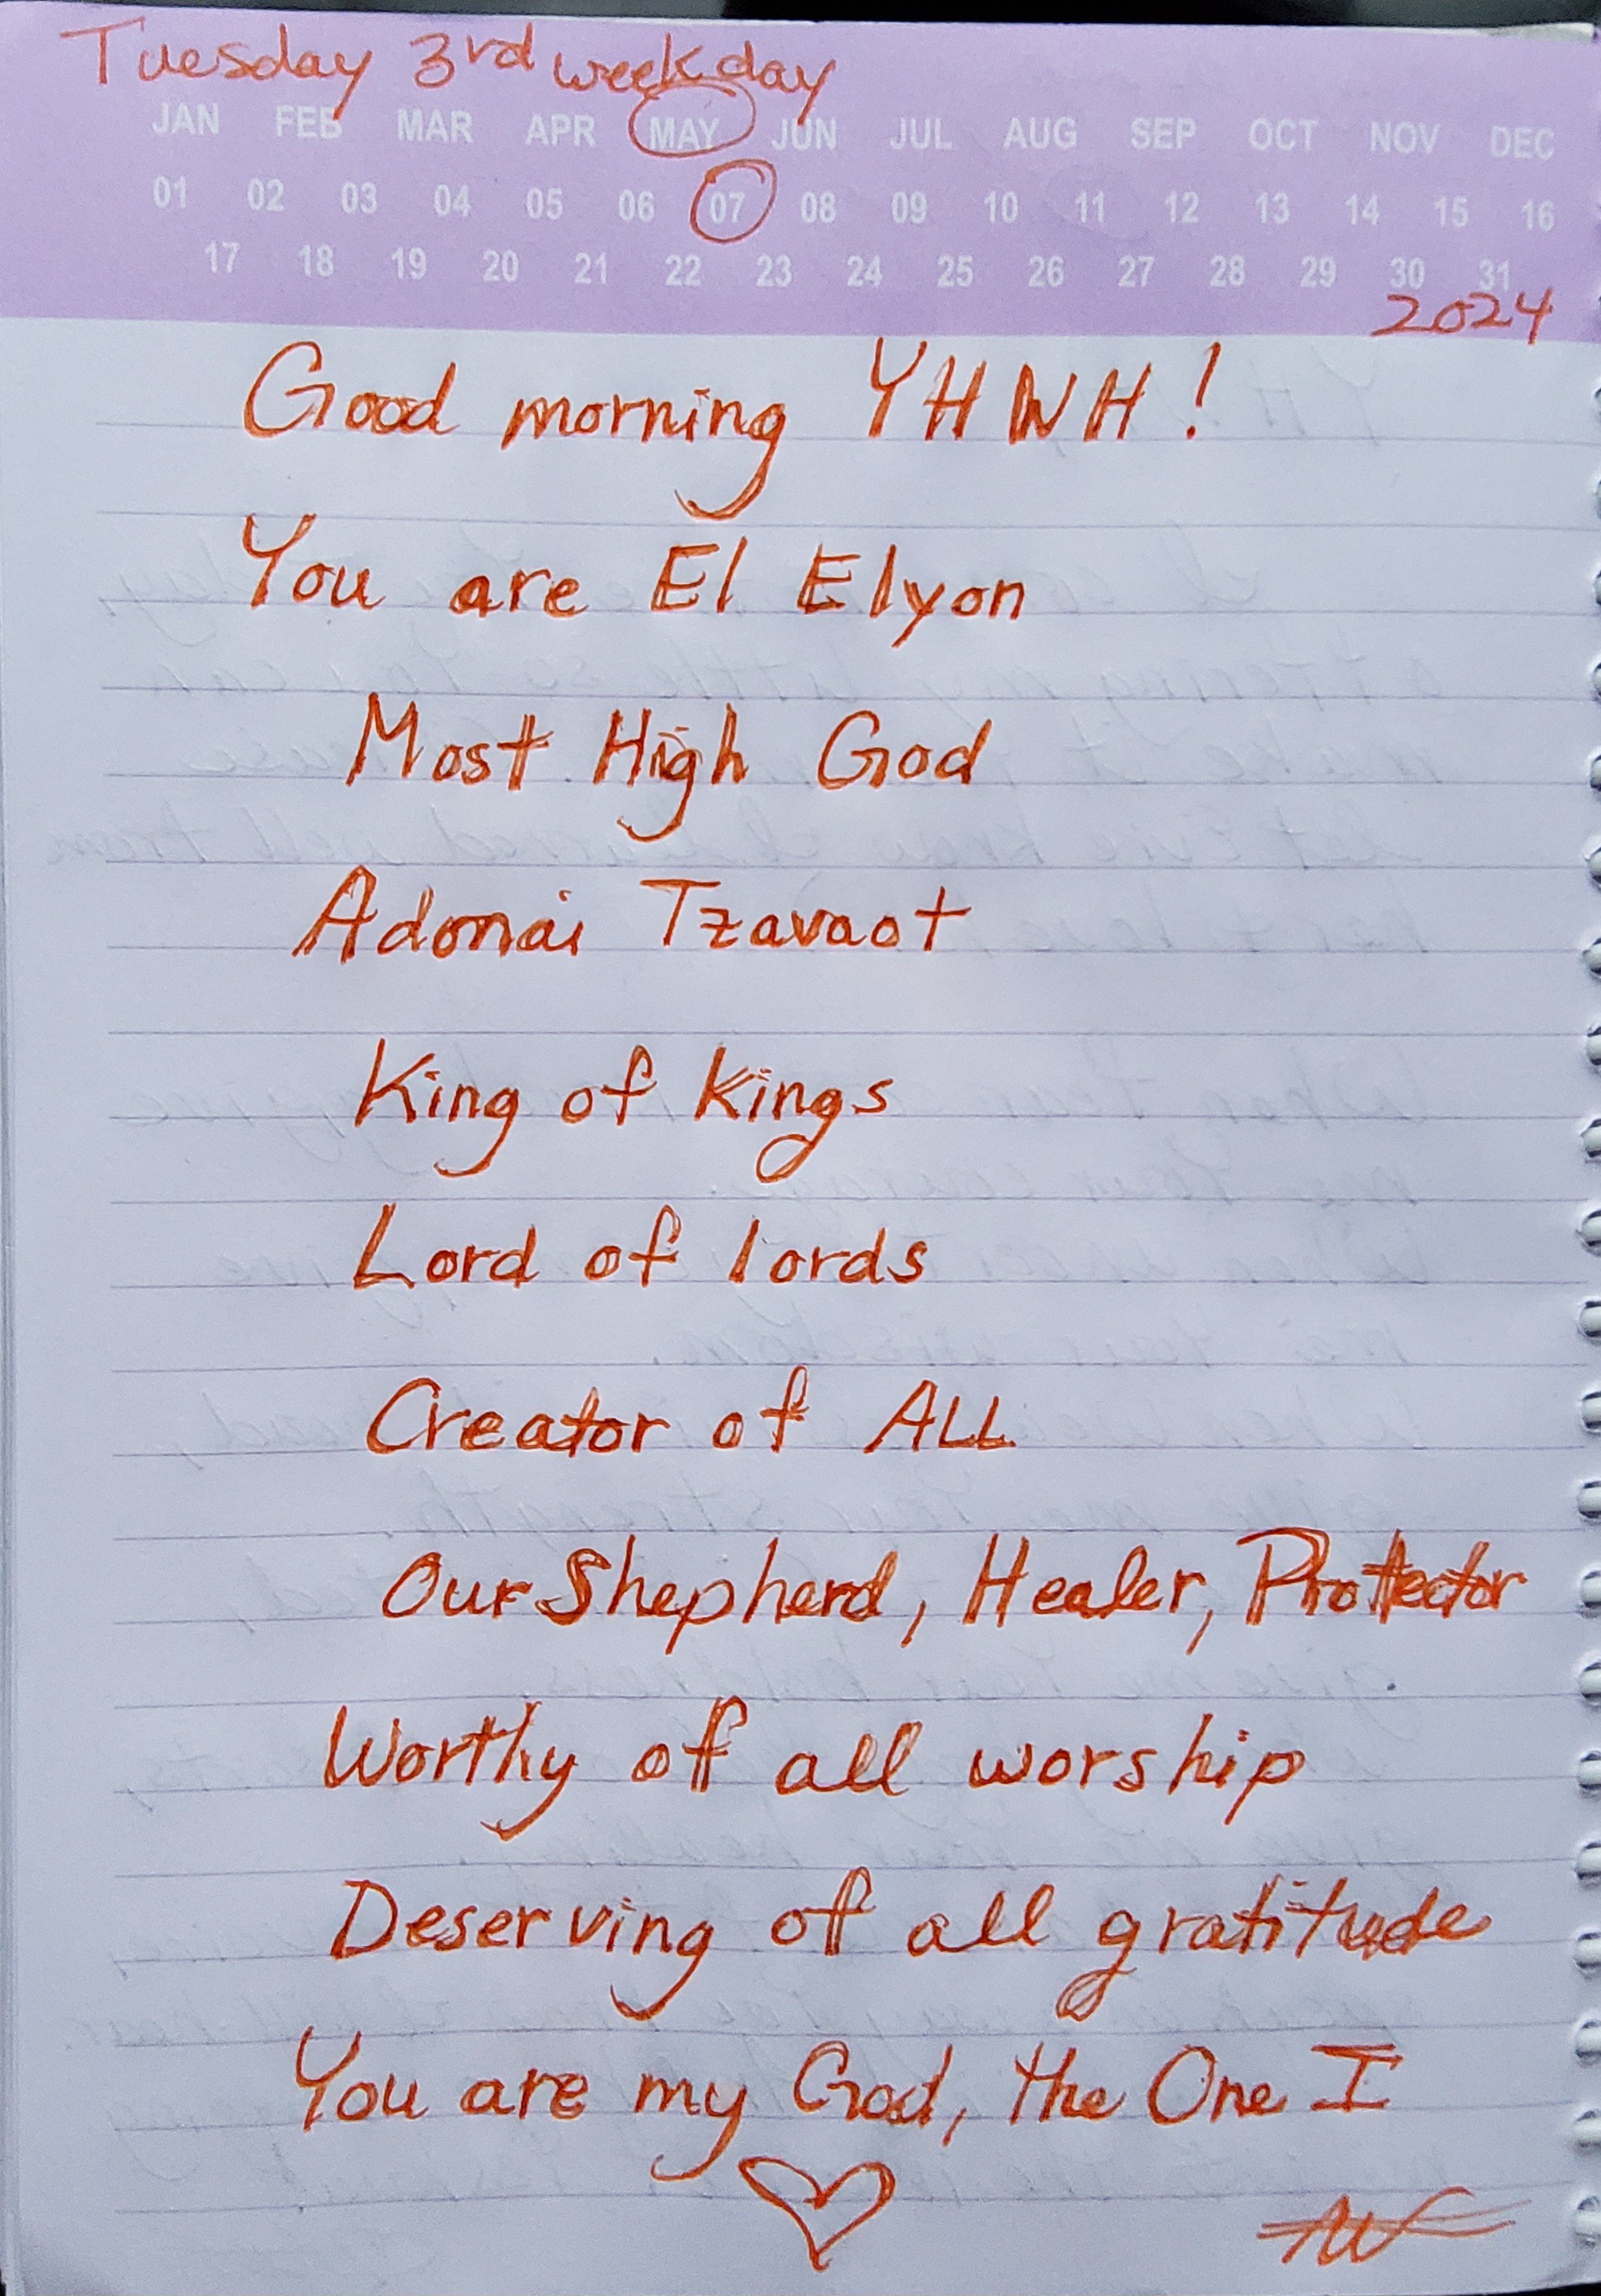 Tuesday 3rd weekday
JAN FEB MAR APR MAY JUN JUL AUG SEP OCT NOV DEC
01 02 03 04 05 06 07 08 09 10 11 12 13 14 15 16
17 18 19 20 21 22 23 24 25 26 27 28 29 30 31
2024
Good morning YHWH!
You are El Elyon
Most High God
Adonai Tzavaot
King of kings
Lord of lords
Creator of ALL
Our Shepherd, Healer, Protector
Worthy of all worship
Deserving of all gratitude
You are my God, the One I